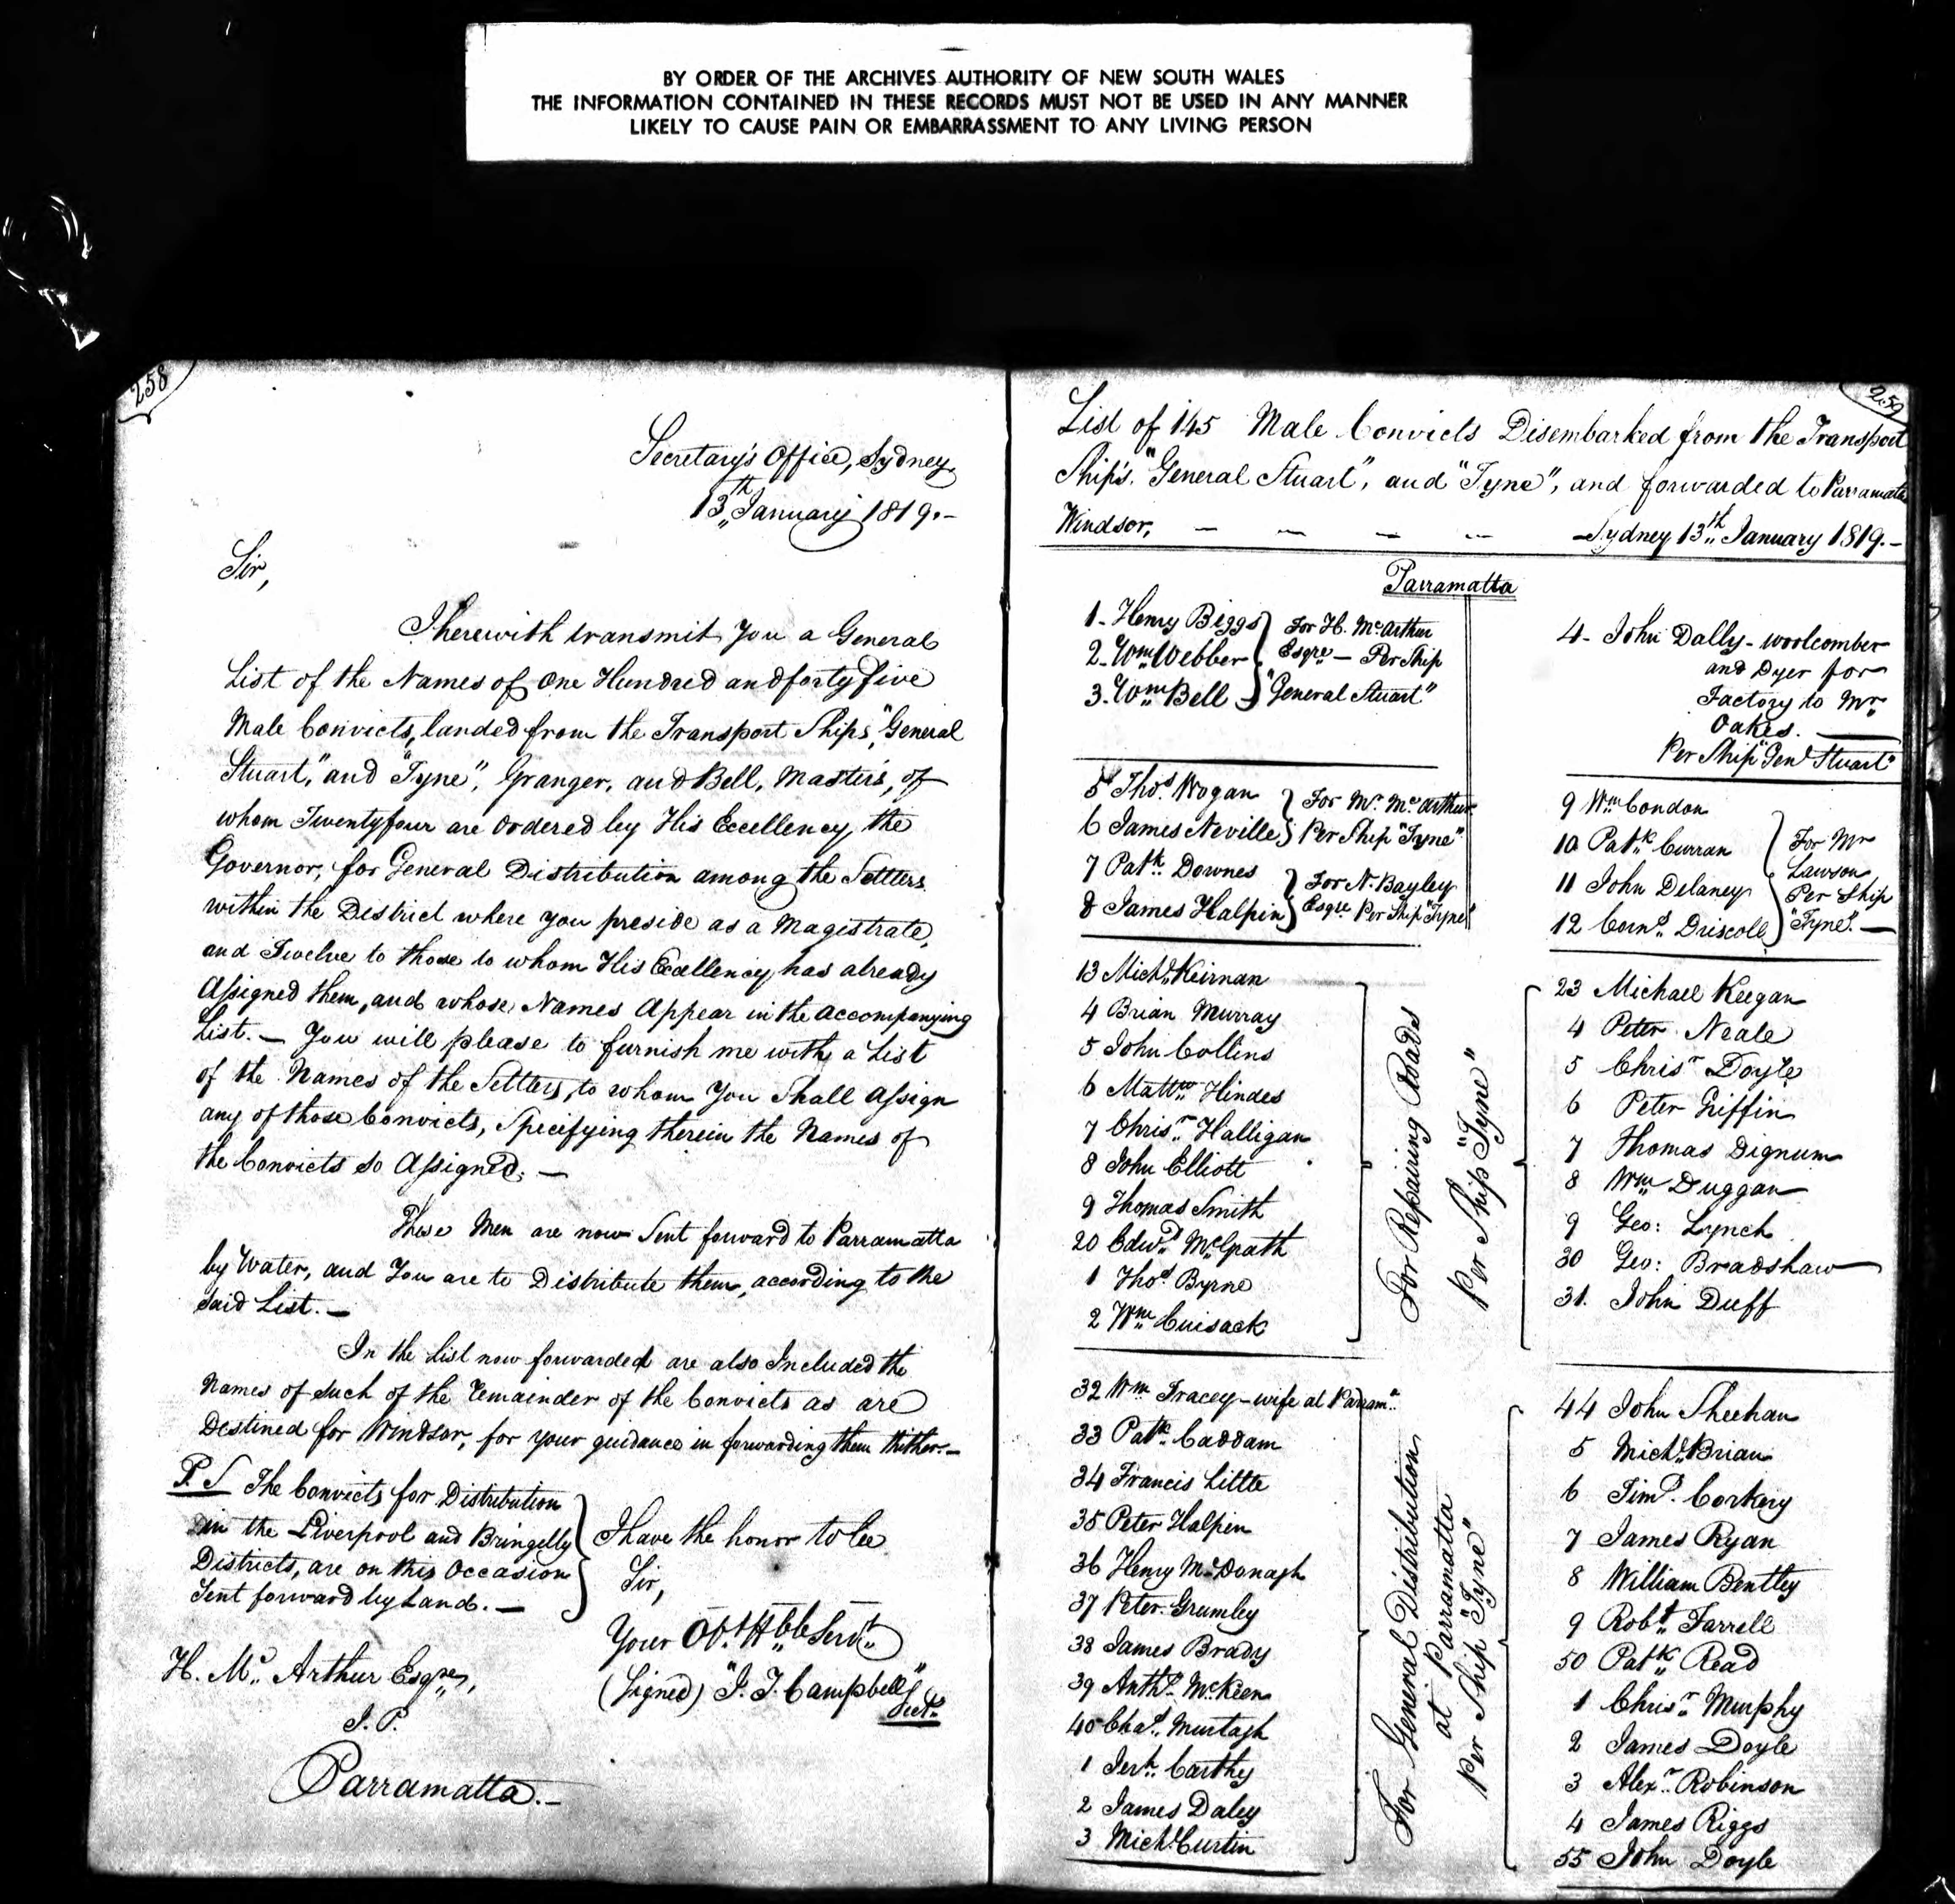 BY ORDER OF THE ARCHIVES AUTHORITY OF NEW SOUTH WALES
THE INFORMATION CONTAINED IN THESE RECORDS MUST NOT BE USED IN ANY MANNER
LIKELY TO CAUSE PAIN OR EMBARRASSMENT TO ANY LIVING PERSON
258
Secretary's Office, Sydney
13th January 1819.-
Sir,
I herewith transmit You a General
List of the Names of One Hundred and forty five
Male Convicts, landed from the Transport Ships, "General
Stuart," and "Tyne", Granger, and Bell, Masters, of
whom Twenty four are Ordered by His Excellency, the
Governor, for General Distribution among the Settlers
within the District where you preside as a Magistrate,
and Twelve to those to whom His Excellency has already
Assigned them, and whose Names Appear in the accompanying
List. — You will please to furnish me with a List
of the Names of the Settlers, to whom You Shall Assign
any of those Convicts, Specifying therein the Names of
the Convicts so Assigned. —
These Men are now Sent forward to Parramatta
by Water, and You are to Distribute them, according to the
said List. —
In the List now forwarded are also Included the
Names of such of the remainder of the Convicts as are
Destined for Windsor, for your guidance in forwarding them thither.—
P.S The Convicts for Distribution
in the Liverpool and Bringelly
Districts, are on this Occasion
Sent forward by Land. —
I have the honor to be
Sir,
Your Obt. Hble Servt.
(Signed) "J. T. Campbell"
Secty.
H. Mc. Arthur Esqre.,
J. P.
Parramatta.—
259
List of 145 Male Convicts Disembarked from the Transport
Ship's. "General Stuart", and "Tyne", and forwarded to Parramatta
Windsor, — — — — — Sydney 13th January 1819.—
Parramatta
1- Henry Biggs
2- Wm. Webber
3. Wm. Bell
For H. McArthur
Esqre — Per Ship
"General Stuart"
4- John Dally - woolcomber
and Dyer for
Factory to Mr.
Oakes. —
Per Ship "Genl Stuart"
5 Thos. Wogan
6 James Neville
For Mr. Mc Arthur
Per Ship "Tyne"
7 Patk. Downes
8 James Halpin
For N. Bayley
Esqre Per Ship "Tyne"
9 Wm. Condon
10 Patk. Curran
11 John Delaney
12 Corns. Driscoll
For Mr
Lawson
Per Ship
"Tyne". —
13 Michl. Keirnan
4 Brian Murray
5 John Collins
6 Mattw. Hindes
7 Chrisr. Halligan
8 John Elliott
9 Thomas Smith
20 Edwd. McGrath
1 Thos. Byrne
2 Wm. Cuisack
For Repairing Roads
Per Ship "Tyne"
23 Michael Keegan
4 Peter Neale
5 Chrisr Doyle
6 Peter Griffin
7 Thomas Dignum
8 Wm. Duggan
9 Geo: Lynch
30 Geo: Bradshaw
31. John Duff
32 Wm. Tracey - wife at Parrama.
33 Patk. Caddam
34 Francis Little
35 Peter Halpin
36 Henry McDonagh
37 Peter Grumley
38 James Brady
39 Anthy. McKeen
40 Chas. Murtagh
1 Jerh. Carthy
2 James Daley
3 Michl. Curtin
For General Distribution
at Parramatta
Per Ship "Tyne"
44 John Sheehan
5 Michl. Brian
6 Timy. Corkery
7 James Ryan
8 William Bentley
9 Robt. Farrell
50 Patk. Read
1 Chrisr. Murphy
2 James Doyle
3 Alexr. Robinson
4 James Riggs
55 John Doyle